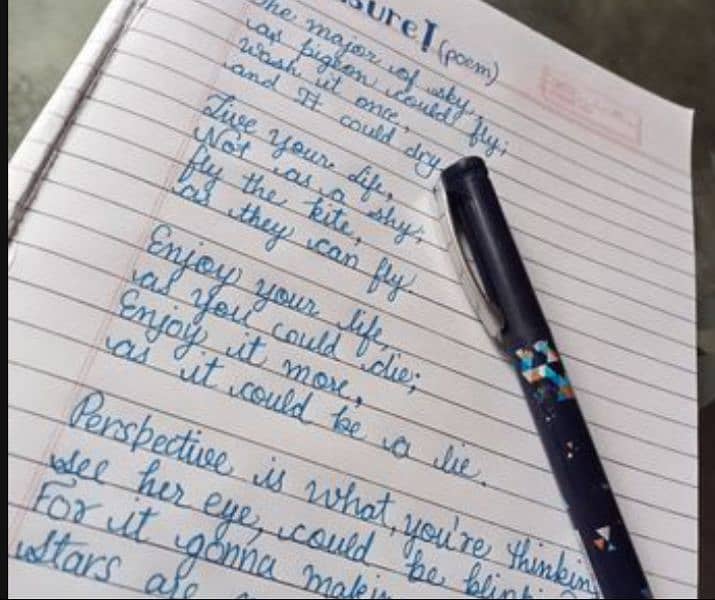 sure! (poem)
The major of sky,
as pigeon could fly;
wash it once,
and It could dry.
Live your life,
Not as a shy;
fly the kite,
as they can fly.
Enjoy your life,
as you could die;
Enjoy it more,
as it could be a lie.
Perspective is what, you're thinkin
see her eye, could be blinki
For it gonna makin
Stars are